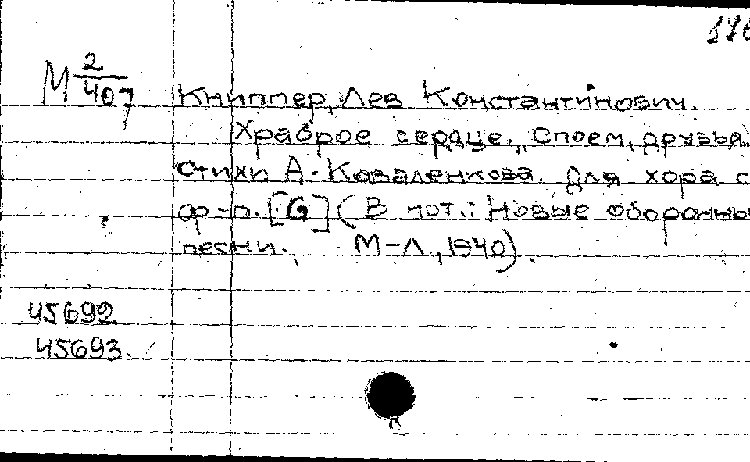 М 2/407
Книппер, Лев Константинович.
Храброе сердце. „Споем, друзья.
Стихи А. Коваленкова. Для хора с
ф-п. [G] (В нот.: Новые оборонны
песни. М-Л, 1940).
45692
45693.